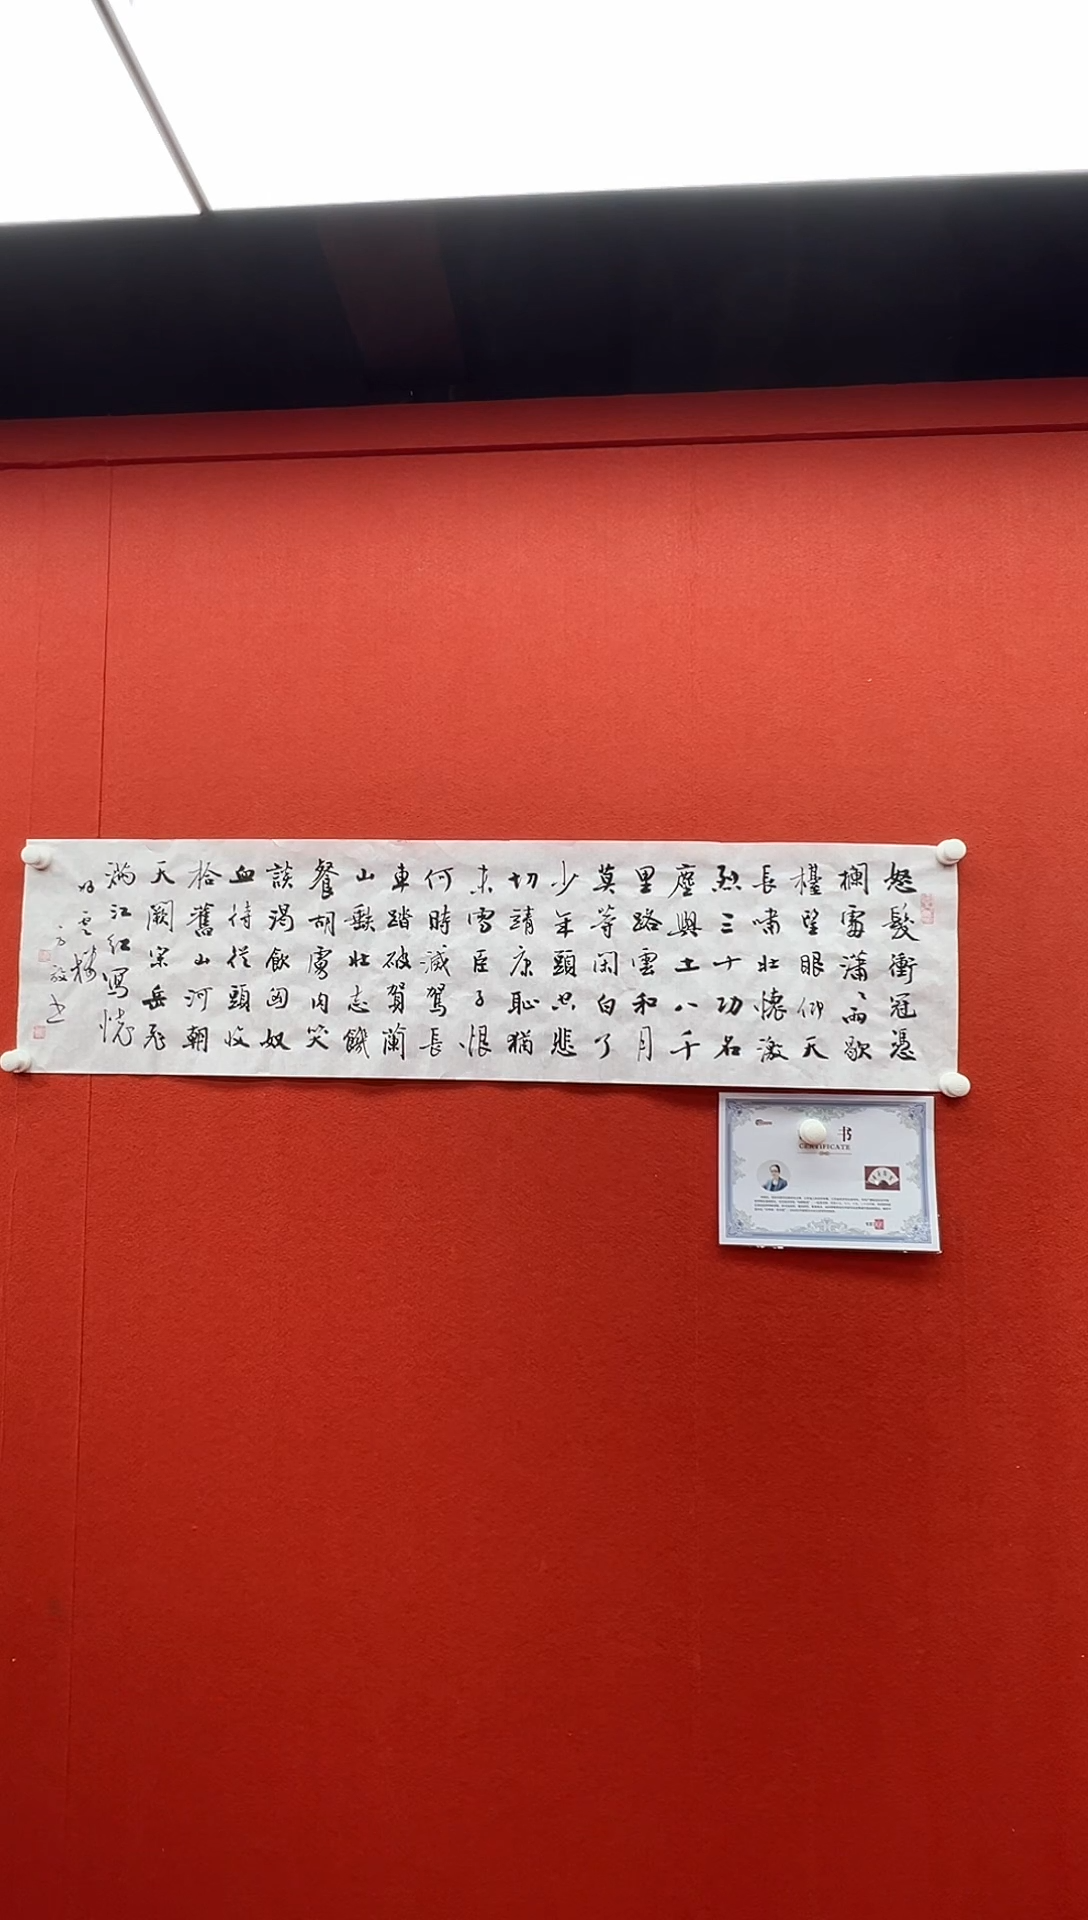 怒髮衝冠憑
欄處瀟〻雨歇
檯望眼仰天
長嘯壯懷激
烈三十功名
塵與土八千
里路雲和月
莫等閑白了
少年頭空悲
切靖康恥猶
未雪臣子恨
何時滅駕長
車踏破賀蘭
山缺壯志饑
餐胡虜肉笑
談渴飲匈奴
血待從頭收
拾舊山河朝
天闕宋岳飛
滿江红寫懷
书
CERTIFICATE